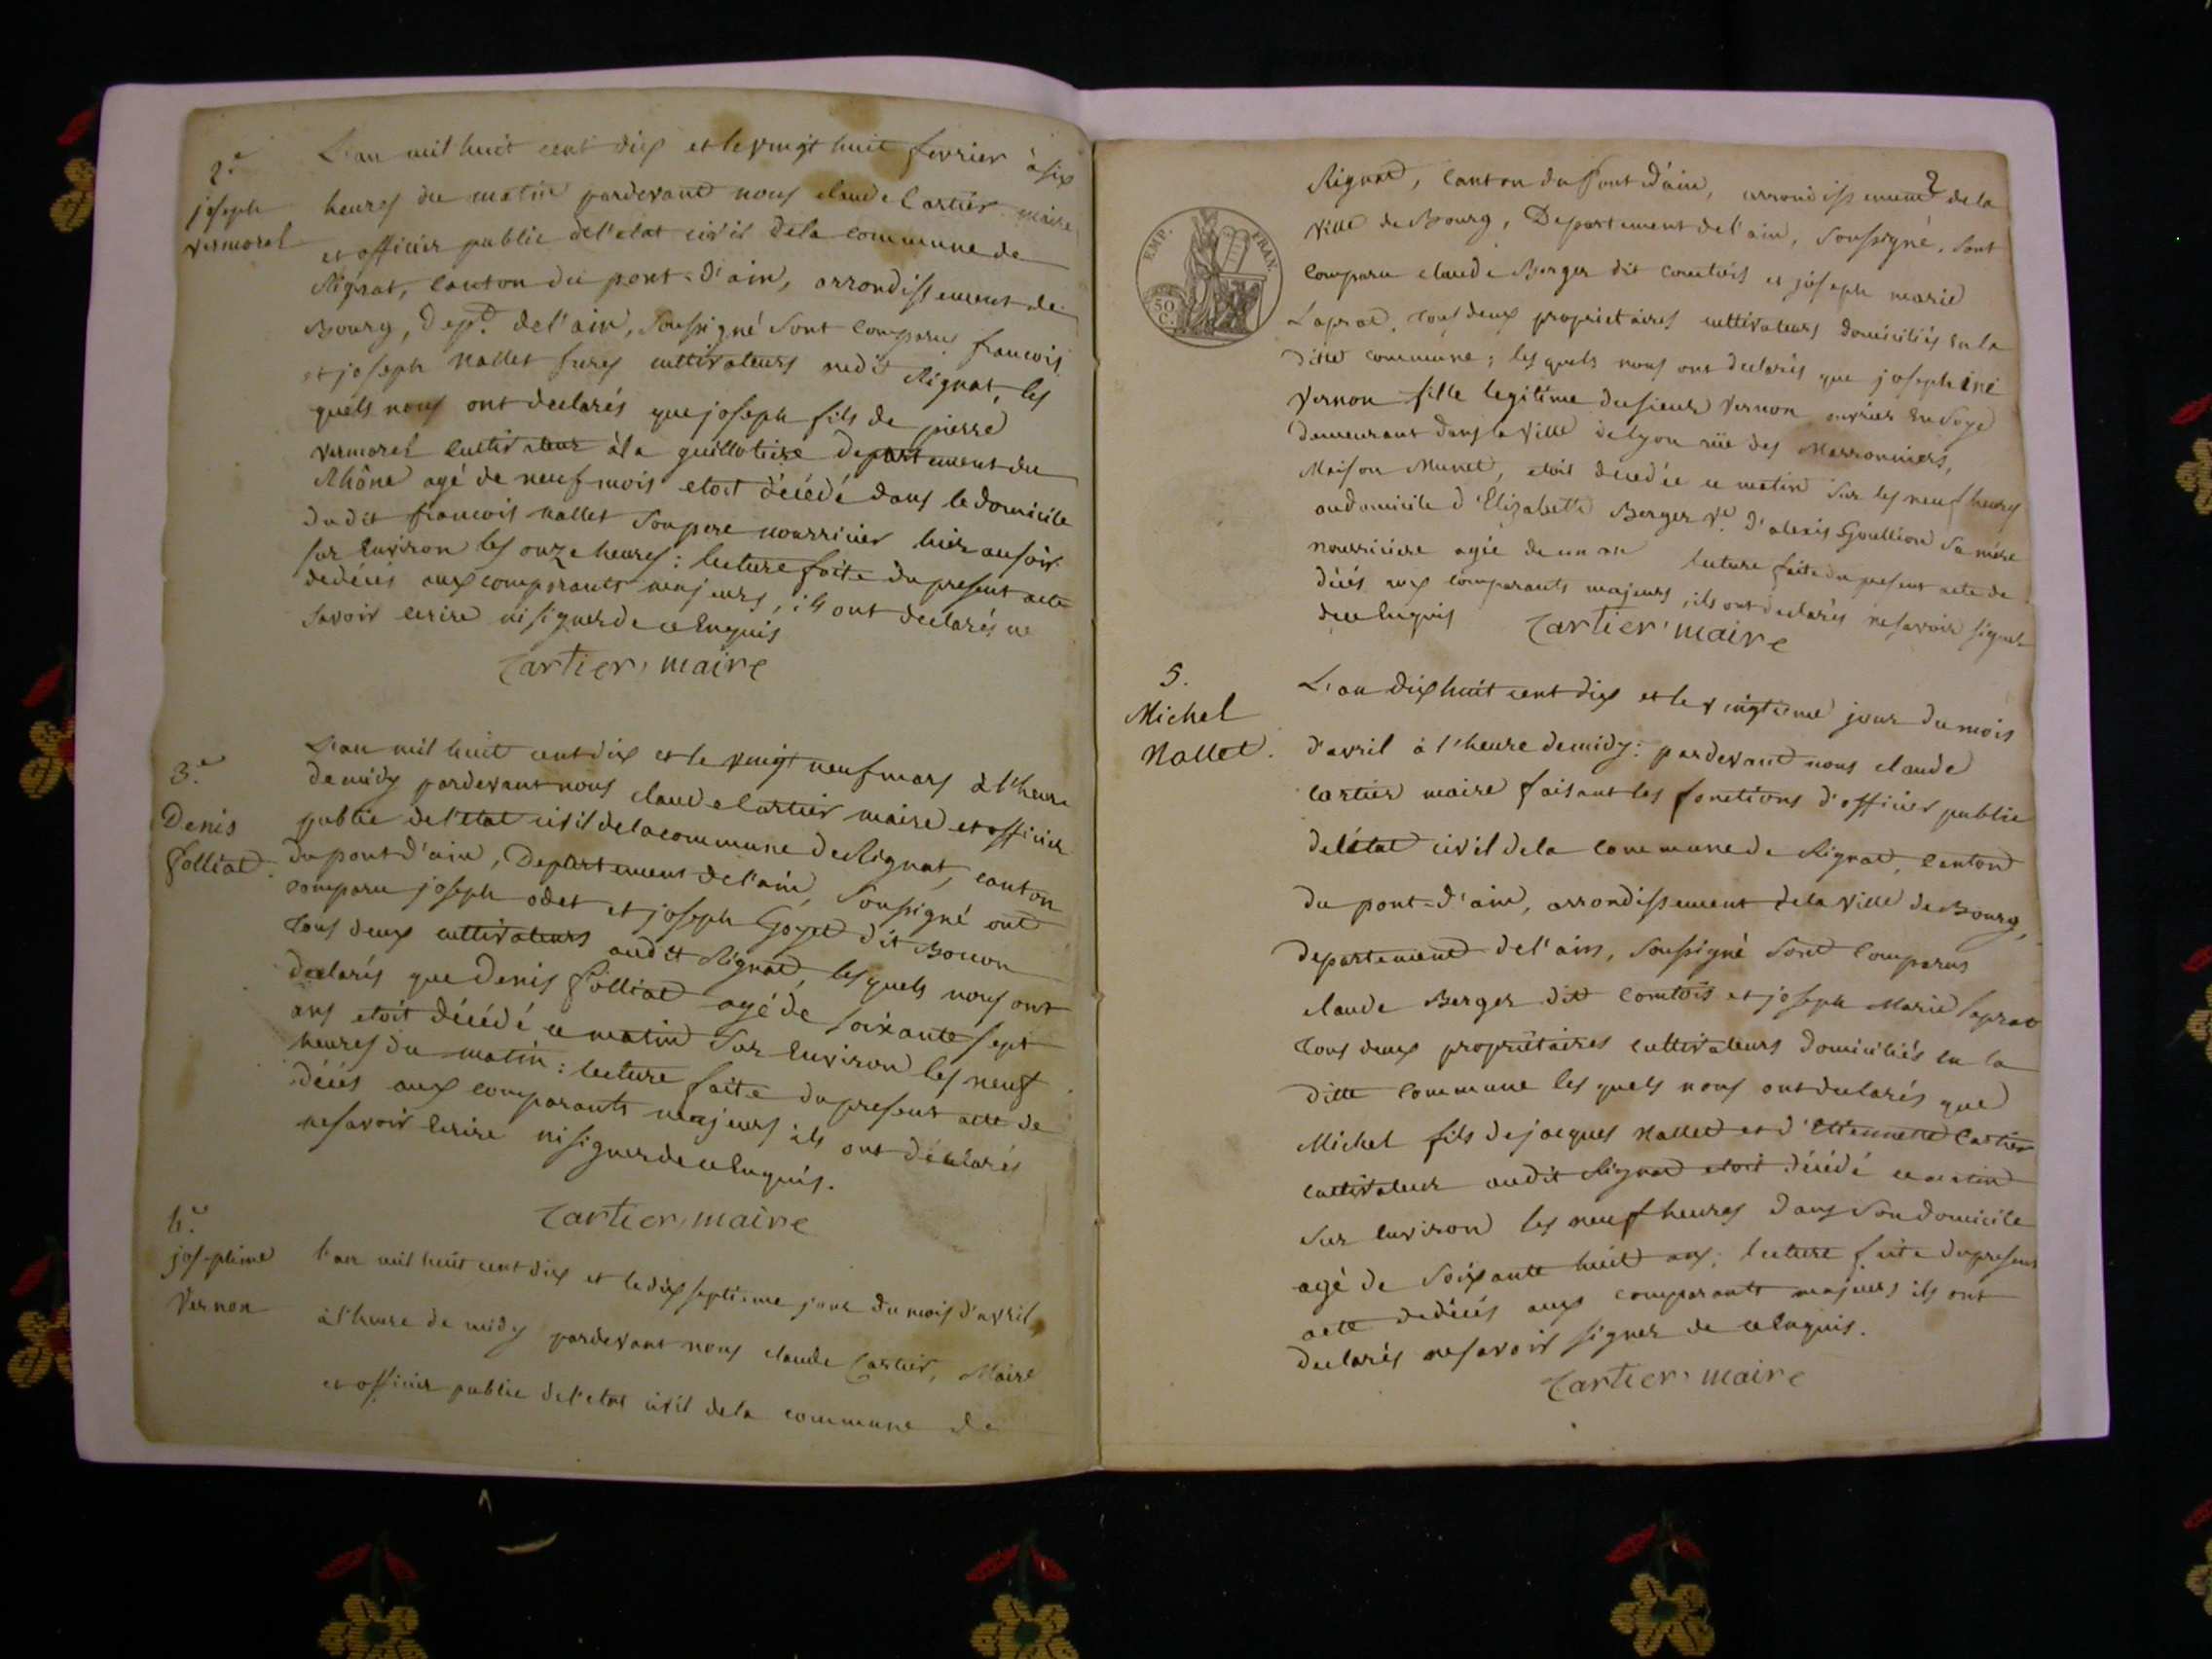 2.e
joseph
vermorel
L'an mil huit cent dix et le vingt huit fevrier à six
heures du matin pardevant nous claude Cartier maire
et officier public de l'etat civil de la commune de
Rignat, canton du pont-d'ain, arrondissement de
Bourg, Dept. de l'ain, soussigné sont comparus francois
et joseph Nallet freres cultivateurs audit Rignat, les
quels nous ont declarés que joseph fils de pierre
vermorel cultivateur à la guillotiere departement du
Rhône agé de neuf mois etoit décédé dans le domicile
dudit francois Nallet son pere nourricier hier au soir
sur environ les onze heures: lecture faite du present acte
de décés aux comparants majeurs, ils ont declarés ne
savoir ecrire ni signer de ce enquis
Cartier, maire
3.e
Denis
folliat.
L'an mil huit cent dix et le vingt neuf mars à l'heure
de midy pardevant nous claude Cartier maire et officier
public de l'etat civil de la commune de Rignat, canton
du pont d'ain, Departement de l'ain, soussigné ont
comparu joseph odet et joseph Goyet dit Bouvon
tous deux cultivateurs audit Rignat, les quels nous ont
declarés que Denis folliat agé de soixante sept
ans etoit décédé ce matin sur environ les neuf
heures du matin: lecture faite du present acte de
décés aux comparants majeurs ils ont déclarés
ne savoir ecrire ni signer de ce enquis.
Cartier, maire
4.e
josephine
Vernon
L'an mil huit cent dix et le dix septieme jour du mois d'avril,
à l'heure de midy pardevant nous claude Cartier, Maire
et officier public de l'etat civil de la commune de
2
EMP. FRAN.
50 C.
Rignat, canton du Pont d'ain, arrondissement de la
ville de Bourg, Departement de l'ain, soussigné, sont
comparu claude Berger dit comtois et joseph marie
Laprat, tous deux proprietaires cultivateurs domiciliés en la
ditte commune; les quels nous ont declarés que josephine
Vernon fille legitime du sieur Vernon ouvrier en soye
demeurant dans la ville de lyon rüe des Marronniers,
Maison Munet, etoit decedée ce matin sur les neuf heures
au domicile d'Elizabeth Berger Ve. d'alexis Goullion sa mére
nourriciere agée de un an lecture faite du present acte de
décés aux comparants majeurs, ils ont declarés ne savoir signer
de ce enquis Cartier, maire
5.
Michel
Nallet.
L'an dix huit cent dix et le vingtieme jour du mois
d'avril à l'heure de midy: pardevant nous claude
Cartier maire faisant les fonctions d'officier public
de l'état civil de la commune de Rignat, canton
du pont-d'ain, arrondissement de la ville de Bourg,
departement de l'ain, soussigné sont comparus
claude Berger dit comtois et joseph Marie laprat
tous deux propriétaires cultivateurs domiciliés en la
ditte commune les quels nous ont declarés que
Michel fils de jacques Nallet et d'Etiennette Cartier
cultivateur audit Rignat etoit décédé ce matin
sur environ les neuf heures dans son domicile
agé de soixante huit ans; lecture faite du present
acte de décés aux comparants majeurs ils ont
declarés ne savoir signer de ce enquis.
Cartier, maire